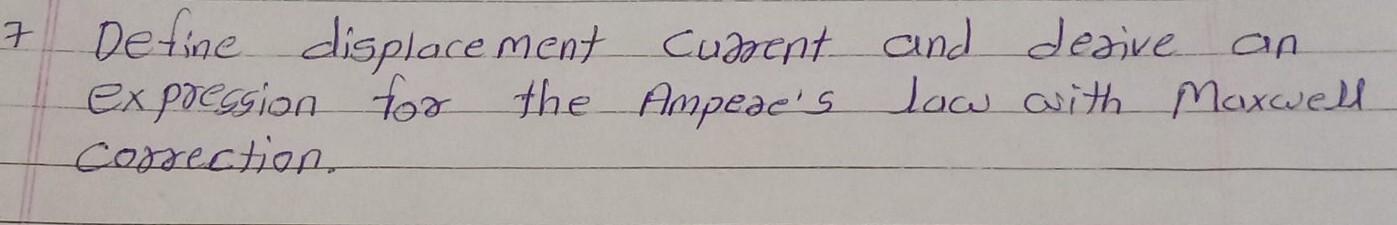 7 Define displacement current and derive an
expression for the Ampere's law with Maxwell
correction.